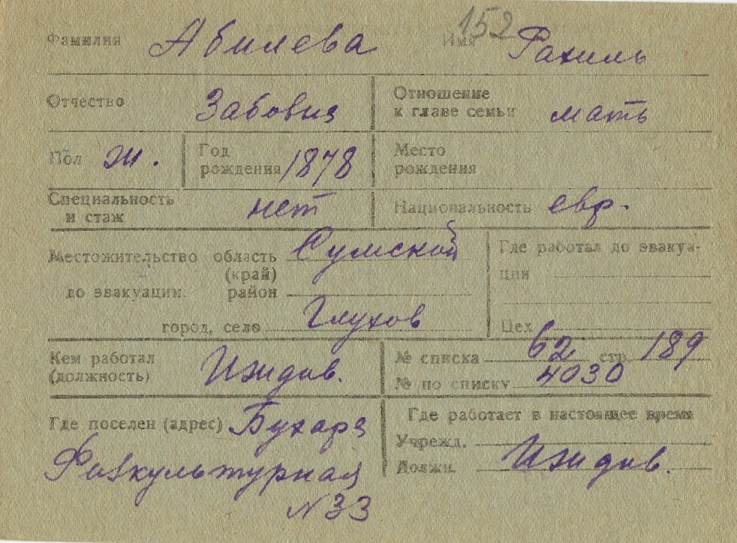 152
Фамилия Абилева Имя Рахиль
Отчество Забовна Отношение к главе семьи мать
Пол ж. Год рождения 1878 Место рождения
Специальность и стаж нет Национальность евр.
Местожительство область Сумской Где работал до эвакуа-
(край) ции
до эвакуации район
город, село Глухов Цех
Кем работал (должность) Иждив. № списка 62 стр. 189
№ по списку 4030
Где поселен (адрес) Бухара Где работает в настоящее время
Физкультурная Учрежд.
N 33 Должн. Иждив.